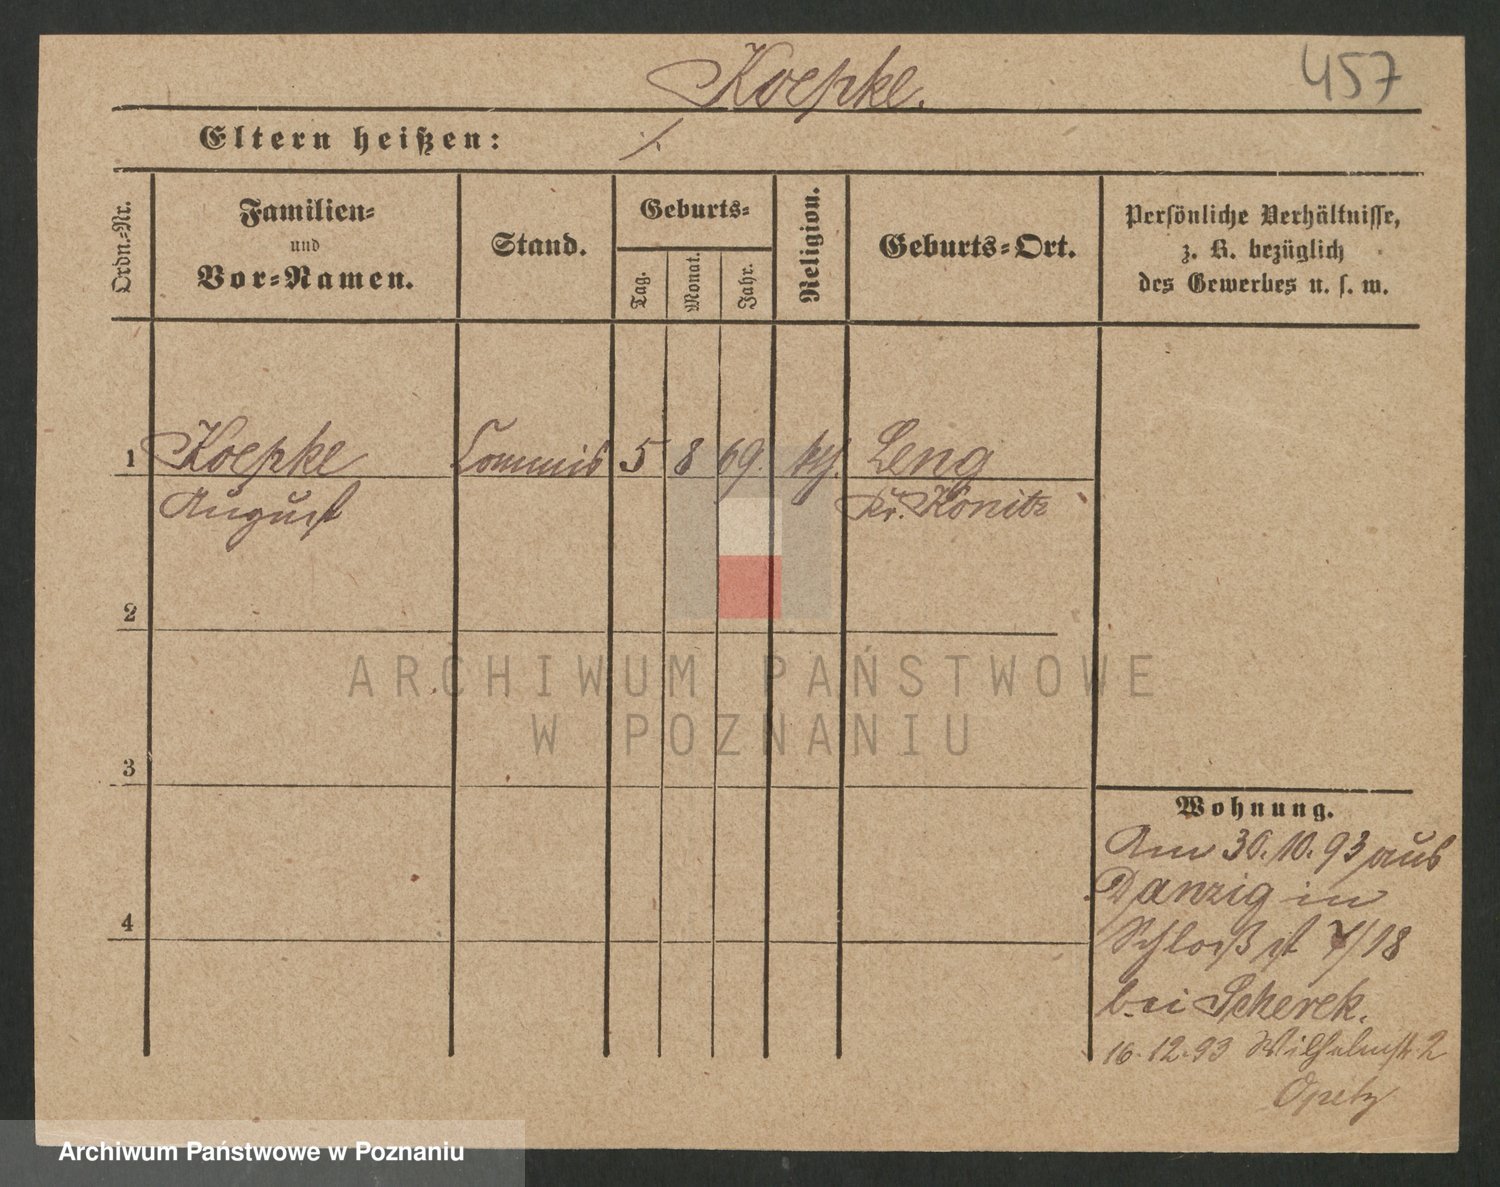 Koepke.
457
Eltern heißen: ./.
Ordn.-Nr.
Familien-
und
Vor-Namen.
Stand.
Geburts-
Tag.
Monat.
Jahr.
Religion.
Geburts-Ort.
Persönliche Verhältnisse,
z. B. bezüglich
des Gewerbes u. s. w.
1 Koepke Commis 5 8 69. Leng
August Kr. Konitz
2
3
4
Wohnung.
Am 30.10.93 aus
Danzig in
Schloßst 4/18
bei Scherek.
16.12.93 Wilhelmstr. 2
Opetz
ARCHIWUM PAŃSTWOWE
W POZNANIU
Archiwum Państwowe w Poznaniu